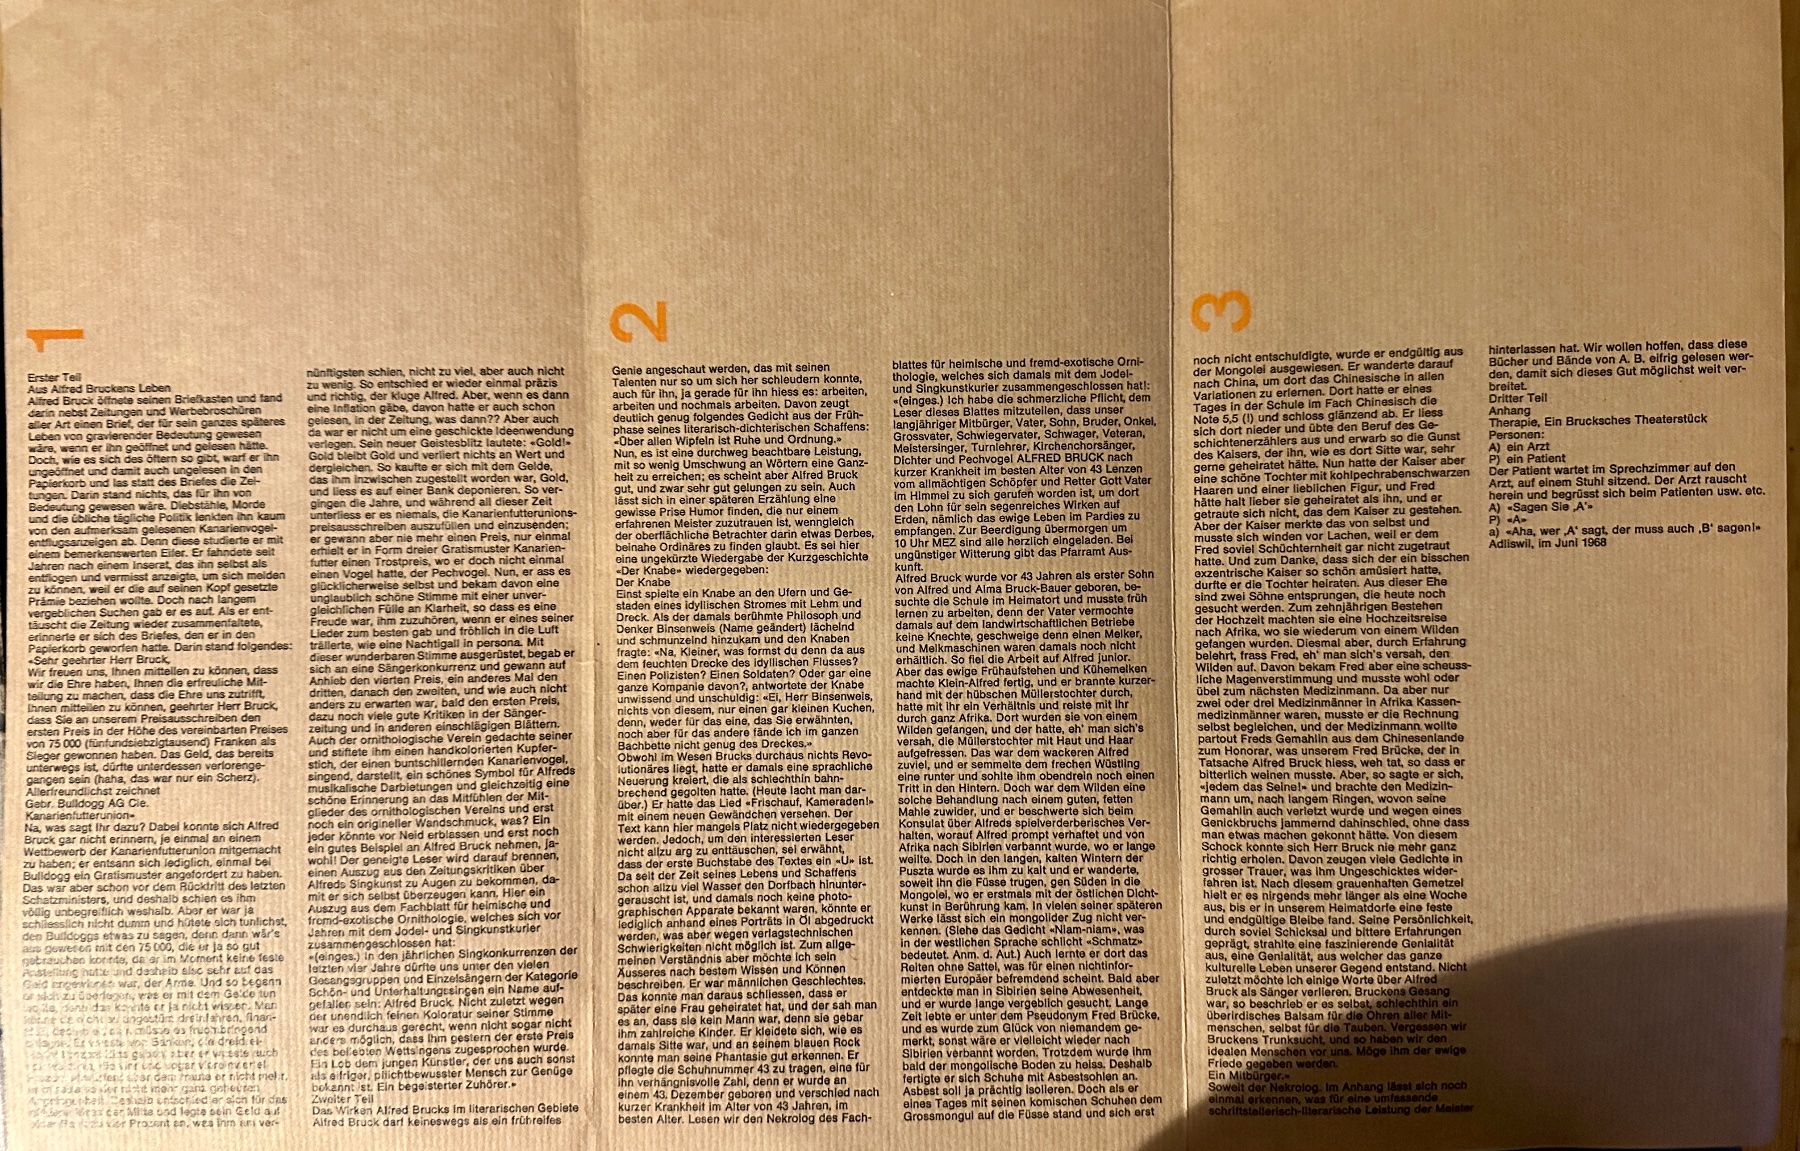 1
Erster Teil
Aus Alfred Bruckens Leben
Alfred Bruck öffnete seinen Briefkasten und fand
darin nebst Zeitungen und Werbebroschüren
aller Art einen Brief, der für sein ganzes späteres
Leben von gravierender Bedeutung gewesen
wäre, wenn er ihn geöffnet und gelesen hätte.
Doch, wie es sich des öftern so gibt, warf er ihn
ungeöffnet und damit auch ungelesen in den
Papierkorb und las statt des Briefes die Zei-
tungen. Darin stand nichts, das für ihn von
Bedeutung gewesen wäre. Diebstähle, Morde
und die übliche tägliche Politik lenkten ihn kaum
von den aufmerksam gelesenen Kanarienvogel-
entflugsanzeigen ab. Denn diese studierte er mit
einem bemerkenswerten Eifer. Er fahndete seit
Jahren nach einem Inserat, das ihn selbst als
entflogen und vermisst anzeigte, um sich melden
zu können, weil er die auf seinen Kopf gesetzte
Prämie beziehen wollte. Doch nach langem
vergeblichen Suchen gab er es auf. Als er ent-
täuscht die Zeitung wieder zusammenfaltete,
erinnerte er sich des Briefes, den er in den
Papierkorb geworfen hatte. Darin stand folgendes:
«Sehr geehrter Herr Bruck,
Wir freuen uns, Ihnen mitteilen zu können, dass
wir die Ehre haben, Ihnen die erfreuliche Mit-
teilung zu machen, dass die Ehre uns zutrifft,
Ihnen mitteilen zu können, geehrter Herr Bruck,
dass Sie an unserem Preisausschreiben den
ersten Preis in der Höhe des vereinbarten Preises
von 75 000 (fünfundsiebzigtausend) Franken als
Sieger gewonnen haben. Das Geld, das bereits
unterwegs ist, dürfte unterdessen verlorenge-
gangen sein (haha, das war nur ein Scherz).
Allerfreundlichst zeichnet
Gebr. Bulldogg AG Cie.
Kanarienfutterunion»
Na, was sagt Ihr dazu? Dabei konnte sich Alfred
Bruck gar nicht erinnern, je einmal an einem
Wettbewerb der Kanarienfutterunion mitgemacht
zu haben; er entsann sich lediglich, einmal bei
Bulldogg ein Gratismuster angefordert zu haben.
Das war aber schon vor dem Rücktritt des letzten
Schatzministers, und deshalb schien es ihm
völlig unbegreiflich weshalb. Aber er war ja
schliesslich nicht dumm und hütete sich tunlichst,
den Bulldoggs etwas zu sagen, denn dann wär's
aus gewesen mit den 75 000, die er ja so gut
gebrauchen konnte, da er im Moment keine feste
Anstellung hatte und deshalb also sehr auf das
Geld angewiesen war, der Arme. Und so begann
er sich zu überlegen, was er mit dem Gelde tun
wollte, denn das konnte er ja nicht wissen. Man
könne es nicht zu ungestüm dreinfahren, finan-
fruchtbringend
Er wusste von Banken, die drei ei-
aber er wusste auch
sogar vier
aber dem traute er nicht mehr,
Deshalb entschied er sich für das
der Mitte und legte sein Geld auf
vier Prozent an, was ihm am ver-
nünftigsten schien, nicht zu viel, aber auch nicht
zu wenig. So entschied er wieder einmal präzis
und richtig, der kluge Alfred. Aber, wenn es dann
eine Inflation gäbe, davon hatte er auch schon
gelesen, in der Zeitung, was dann?? Aber auch
da war er nicht um eine geschickte Ideenwendung
verlegen. Sein neuer Geistesblitz lautete: «Gold!»
Gold bleibt Gold und verliert nichts an Wert und
dergleichen. So kaufte er sich mit dem Gelde,
das ihm inzwischen zugestellt worden war, Gold,
und liess es auf einer Bank deponieren. So ver-
gingen die Jahre, und während all dieser Zeit
unterliess er es niemals, die Kanarienfutterunions-
preisausschreiben auszufüllen und einzusenden;
er gewann aber nie mehr einen Preis, nur einmal
erhielt er in Form dreier Gratismuster Kanarien-
futter einen Trostpreis, wo er doch nicht einmal
einen Vogel hatte, der Pechvogel. Nun, er ass es
glücklicherweise selbst und bekam davon eine
unglaublich schöne Stimme mit einer unver-
gleichlichen Fülle an Klarheit, so dass es eine
Freude war, ihm zuzuhören, wenn er eines seiner
Lieder zum besten gab und fröhlich in die Luft
trällerte, wie eine Nachtigall in persona. Mit
dieser wunderbaren Stimme ausgerüstet, begab er
sich an eine Sängerkonkurrenz und gewann auf
Anhieb den vierten Preis, ein anderes Mal den
dritten, danach den zweiten, und wie auch nicht
anders zu erwarten war, bald den ersten Preis,
dazu noch viele gute Kritiken in der Sänger-
zeitung und in anderen einschlägigen Blättern.
Auch der ornithologische Verein gedachte seiner
und stiftete ihm einen handkolorierten Kupfer-
stich, der einen buntschillernden Kanarienvogel,
singend, darstellt, ein schönes Symbol für Alfreds
musikalische Darbietungen und gleichzeitig eine
schöne Erinnerung an das Mitfühlen der Mit-
glieder des ornithologischen Vereins und erst
noch ein origineller Wandschmuck, was? Ein
jeder könnte vor Neid erblassen und erst noch
ein gutes Beispiel an Alfred Bruck nehmen, ja-
wohl! Der geneigte Leser wird darauf brennen,
einen Auszug aus den Zeitungskritiken über
Alfreds Singkunst zu Augen zu bekommen, da-
mit er sich selbst überzeugen kann. Hier ein
Auszug aus dem Fachblatt für heimische und
fremd-exotische Ornithologie, welches sich vor
Jahren mit dem Jodel- und Singkunstkurier
zusammengeschlossen hat:
«(einges.) In den jährlichen Singkonkurrenzen der
letzten vier Jahre dürfte uns unter den vielen
Gesangsgruppen und Einzelsängern der Kategorie
Schön- und Unterhaltungssingen ein Name auf-
gefallen sein: Alfred Bruck. Nicht zuletzt wegen
der unendlich feinen Koloratur seiner Stimme
war es durchaus gerecht, wenn nicht sogar nicht
anders möglich, dass ihm gestern der erste Preis
des beliebten Wettsingens zugesprochen wurde.
Ein Lob dem jungen Künstler, der uns auch sonst
als eifriger, pflichtbewusster Mensch zur Genüge
bekannt ist. Ein begeisterter Zuhörer.»
Zweiter Teil
Das Wirken Alfred Brucks im literarischen Gebiete
Alfred Bruck darf keineswegs als ein frühreifes
2
Genie angeschaut werden, das mit seinen
Talenten nur so um sich her schleudern konnte,
auch für ihn, ja gerade für ihn hiess es: arbeiten,
arbeiten und nochmals arbeiten. Davon zeugt
deutlich genug folgendes Gedicht aus der Früh-
phase seines literarisch-dichterischen Schaffens:
«Über allen Wipfeln ist Ruhe und Ordnung.»
Nun, es ist eine durchweg beachtbare Leistung,
mit so wenig Umschwung an Wörtern eine Ganz-
heit zu erreichen; es scheint aber Alfred Bruck
gut, und zwar sehr gut gelungen zu sein. Auch
lässt sich in einer späteren Erzählung eine
gewisse Prise Humor finden, die nur einem
erfahrenen Meister zuzutrauen ist, wenngleich
der oberflächliche Betrachter darin etwas Derbes,
beinahe Ordinäres zu finden glaubt. Es sei hier
eine ungekürzte Wiedergabe der Kurzgeschichte
«Der Knabe» wiedergegeben:
Der Knabe
Einst spielte ein Knabe an den Ufern und Ge-
staden eines idyllischen Stromes mit Lehm und
Dreck. Als der damals berühmte Philosoph und
Denker Binsenweis (Name geändert) lächelnd
und schmunzelnd hinzukam und den Knaben
fragte: «Na, Kleiner, was formst du denn da aus
dem feuchten Drecke des idyllischen Flusses?
Einen Polizisten? Einen Soldaten? Oder gar eine
ganze Kompanie davon?, antwortete der Knabe
unwissend und unschuldig: «Ei, Herr Binsenweis,
nichts von diesem, nur einen gar kleinen Kuchen,
denn, weder für das eine, das Sie erwähnten,
noch aber für das andere fände ich im ganzen
Bachbette nicht genug des Dreckes.»
Obwohl im Wesen Brucks durchaus nichts Revo-
lutionäres liegt, hatte er damals eine sprachliche
Neuerung kreiert, die als schlechthin bahn-
brechend gegolten hatte. (Heute lacht man dar-
über.) Er hatte das Lied «Frischauf, Kameraden!»
mit einem neuen Gewändchen versehen. Der
Text kann hier mangels Platz nicht wiedergegeben
werden. Jedoch, um den interessierten Leser
nicht allzu arg zu enttäuschen, sei erwähnt,
dass der erste Buchstabe des Textes ein «U» ist.
Da seit der Zeit seines Lebens und Schaffens
schon allzu viel Wasser den Dorfbach hinunter-
gerauscht ist, und damals noch keine photo-
graphischen Apparate bekannt waren, könnte er
lediglich anhand eines Porträts in Öl abgedruckt
werden, was aber wegen verlagstechnischen
Schwierigkeiten nicht möglich ist. Zum allge-
meinen Verständnis aber möchte ich sein
Äusseres nach bestem Wissen und Können
beschreiben. Er war männlichen Geschlechtes.
Das konnte man daraus schliessen, dass er
später eine Frau geheiratet hat, und der sah man
es an, dass sie kein Mann war, denn sie gebar
ihm zahlreiche Kinder. Er kleidete sich, wie es
damals Sitte war, und an seinem blauen Rock
konnte man seine Phantasie gut erkennen. Er
pflegte die Schuhnummer 43 zu tragen, eine für
ihn verhängnisvolle Zahl, denn er wurde an
einem 43. Dezember geboren und verschied nach
kurzer Krankheit im Alter von 43 Jahren, im
besten Alter. Lesen wir den Nekrolog des Fach-
blattes für heimische und fremd-exotische Orni-
thologie, welches sich damals mit dem Jodel-
und Singkunstkurier zusammengeschlossen hat!:
«(einges.) Ich habe die schmerzliche Pflicht, dem
Leser dieses Blattes mitzuteilen, dass unser
langjähriger Mitbürger, Vater, Sohn, Bruder, Onkel,
Grossvater, Schwiegervater, Schwager, Veteran,
Meistersinger, Turnlehrer, Kirchenchorsänger,
Dichter und Pechvogel ALFRED BRUCK nach
kurzer Krankheit im besten Alter von 43 Lenzen
vom allmächtigen Schöpfer und Retter Gott Vater
im Himmel zu sich gerufen worden ist, um dort
den Lohn für sein segenreiches Wirken auf
Erden, nämlich das ewige Leben im Pardies zu
empfangen. Zur Beerdigung übermorgen um
10 Uhr MEZ sind alle herzlich eingeladen. Bei
ungünstiger Witterung gibt das Pfarramt Aus-
kunft.
Alfred Bruck wurde vor 43 Jahren als erster Sohn
von Alfred und Alma Bruck-Bauer geboren, be-
suchte die Schule im Heimatort und musste früh
lernen zu arbeiten, denn der Vater vermochte
damals auf dem landwirtschaftlichen Betriebe
keine Knechte, geschweige denn einen Melker,
und Melkmaschinen waren damals noch nicht
erhältlich. So fiel die Arbeit auf Alfred junior.
Aber das ewige Frühaufstehen und Kühemelken
machte Klein-Alfred fertig, und er brannte kurzer-
hand mit der hübschen Müllerstochter durch,
hatte mit ihr ein Verhältnis und reiste mit ihr
durch ganz Afrika. Dort wurden sie von einem
Wilden gefangen, und der hatte, eh' man sich's
versah, die Müllerstochter mit Haut und Haar
aufgefressen. Das war dem wackeren Alfred
zuviel, und er semmelte dem frechen Wüstling
eine runter und sohlte ihm obendrein noch einen
Tritt in den Hintern. Doch war dem Wilden eine
solche Behandlung nach einem guten, fetten
Mahle zuwider, und er beschwerte sich beim
Konsulat über Alfreds spielverderberisches Ver-
halten, worauf Alfred prompt verhaftet und von
Afrika nach Sibirien verbannt wurde, wo er lange
weilte. Doch in den langen, kalten Wintern der
Puszta wurde es ihm zu kalt und er wanderte,
soweit ihn die Füsse trugen, gen Süden in die
Mongolei, wo er erstmals mit der östlichen Dicht-
kunst in Berührung kam. In vielen seiner späteren
Werke lässt sich ein mongolider Zug nicht ver-
kennen. (Siehe das Gedicht «Niam-niam», was
in der westlichen Sprache schlicht «Schmatz»
bedeutet. Anm. d. Aut.) Auch lernte er dort das
Reiten ohne Sattel, was für einen nichtinfor-
mierten Europäer befremdend scheint. Bald aber
entdeckte man in Sibirien seine Abwesenheit,
und er wurde lange vergeblich gesucht. Lange
Zeit lebte er unter dem Pseudonym Fred Brücke,
und es wurde zum Glück von niemandem ge-
merkt, sonst wäre er vielleicht wieder nach
Sibirien verbannt worden. Trotzdem wurde ihm
bald der mongolische Boden zu heiss. Deshalb
fertigte er sich Schuhe mit Asbestsohlen an.
Asbest soll ja prächtig isolieren. Doch als er
eines Tages mit seinen komischen Schuhen dem
Grossmongul auf die Füsse stand und sich erst
3
noch nicht entschuldigte, wurde er endgültig aus
der Mongolei ausgewiesen. Er wanderte darauf
nach China, um dort das Chinesische in allen
Variationen zu erlernen. Dort hatte er eines
Tages in der Schule im Fach Chinesisch die
Note 5,5 (!) und schloss glänzend ab. Er liess
sich dort nieder und übte den Beruf des Ge-
schichtenerzählers aus und erwarb so die Gunst
des Kaisers, der ihn, wie es dort Sitte war, sehr
gerne geheiratet hätte. Nun hatte der Kaiser aber
eine schöne Tochter mit kohlpechrabenschwarzen
Haaren und einer lieblichen Figur, und Fred
hätte halt lieber sie geheiratet als ihn, und er
getraute sich nicht, das dem Kaiser zu gestehen.
Aber der Kaiser merkte das von selbst und
musste sich winden vor Lachen, weil er dem
Fred soviel Schüchternheit gar nicht zugetraut
hatte. Und zum Danke, dass sich der ein bisschen
exzentrische Kaiser so schön amüsiert hatte,
durfte er die Tochter heiraten. Aus dieser Ehe
sind zwei Söhne entsprungen, die heute noch
gesucht werden. Zum zehnjährigen Bestehen
der Hochzeit machten sie eine Hochzeitsreise
nach Afrika, wo sie wiederum von einem Wilden
gefangen wurden. Diesmal aber, durch Erfahrung
belehrt, frass Fred, eh' man sich's versah, den
Wilden auf. Davon bekam Fred aber eine scheuss-
liche Magenverstimmung und musste wohl oder
übel zum nächsten Medizinmann. Da aber nur
zwei oder drei Medizinmänner in Afrika Kassen-
medizinmänner waren, musste er die Rechnung
selbst begleichen, und der Medizinmann wollte
partout Freds Gemahlin aus dem Chinesenlande
zum Honorar, was unserem Fred Brücke, der in
Tatsache Alfred Bruck hiess, weh tat, so dass er
bitterlich weinen musste. Aber, so sagte er sich,
«jedem das Seine!» und brachte den Medizin-
mann um, nach langem Ringen, wovon seine
Gemahlin auch verletzt wurde und wegen eines
Genickbruchs jammernd dahinschied, ohne dass
man etwas machen gekonnt hätte. Von diesem
Schock konnte sich Herr Bruck nie mehr ganz
richtig erholen. Davon zeugen viele Gedichte in
grosser Trauer, was ihm Ungeschicktes wider-
fahren ist. Nach diesem grauenhaften Gemetzel
hielt er es nirgends mehr länger als eine Woche
aus, bis er in unserem Heimatdorfe eine feste
und endgültige Bleibe fand. Seine Persönlichkeit,
durch soviel Schicksal und bittere Erfahrungen
geprägt, strahlte eine faszinierende Genialität
aus, eine Genialität, aus welcher das ganze
kulturelle Leben unserer Gegend entstand. Nicht
zuletzt möchte ich einige Worte über Alfred
Bruck als Sänger verlieren. Bruckens Gesang
war, so beschrieb er es selbst, schlechthin ein
überirdisches Balsam für die Ohren aller Mit-
menschen, selbst für die Tauben. Vergessen wir
Bruckens Trunksucht, und so haben wir den
idealen Menschen vor uns. Möge ihm der ewige
Friede gegeben werden.
Ein Mitbürger.»
Soweit der Nekrolog. Im Anhang lässt sich noch
einmal erkennen, was für eine umfassende
schriftstellerisch-literarische Leistung der Meister
hinterlassen hat. Wir wollen hoffen, dass diese
Bücher und Bände von A. B. eifrig gelesen wer-
den, damit sich dieses Gut möglichst weit ver-
breitet.
Dritter Teil
Anhang
Therapie, Ein Brucksches Theaterstück
Personen:
A) ein Arzt
P) ein Patient
Der Patient wartet im Sprechzimmer auf den
Arzt, auf einem Stuhl sitzend. Der Arzt rauscht
herein und begrüsst sich beim Patienten usw. etc.
A) «Sagen Sie ‚A'»
P) «A»
a) «Aha, wer ‚A' sagt, der muss auch ‚B' sagen!»
Adliswil, im Juni 1968